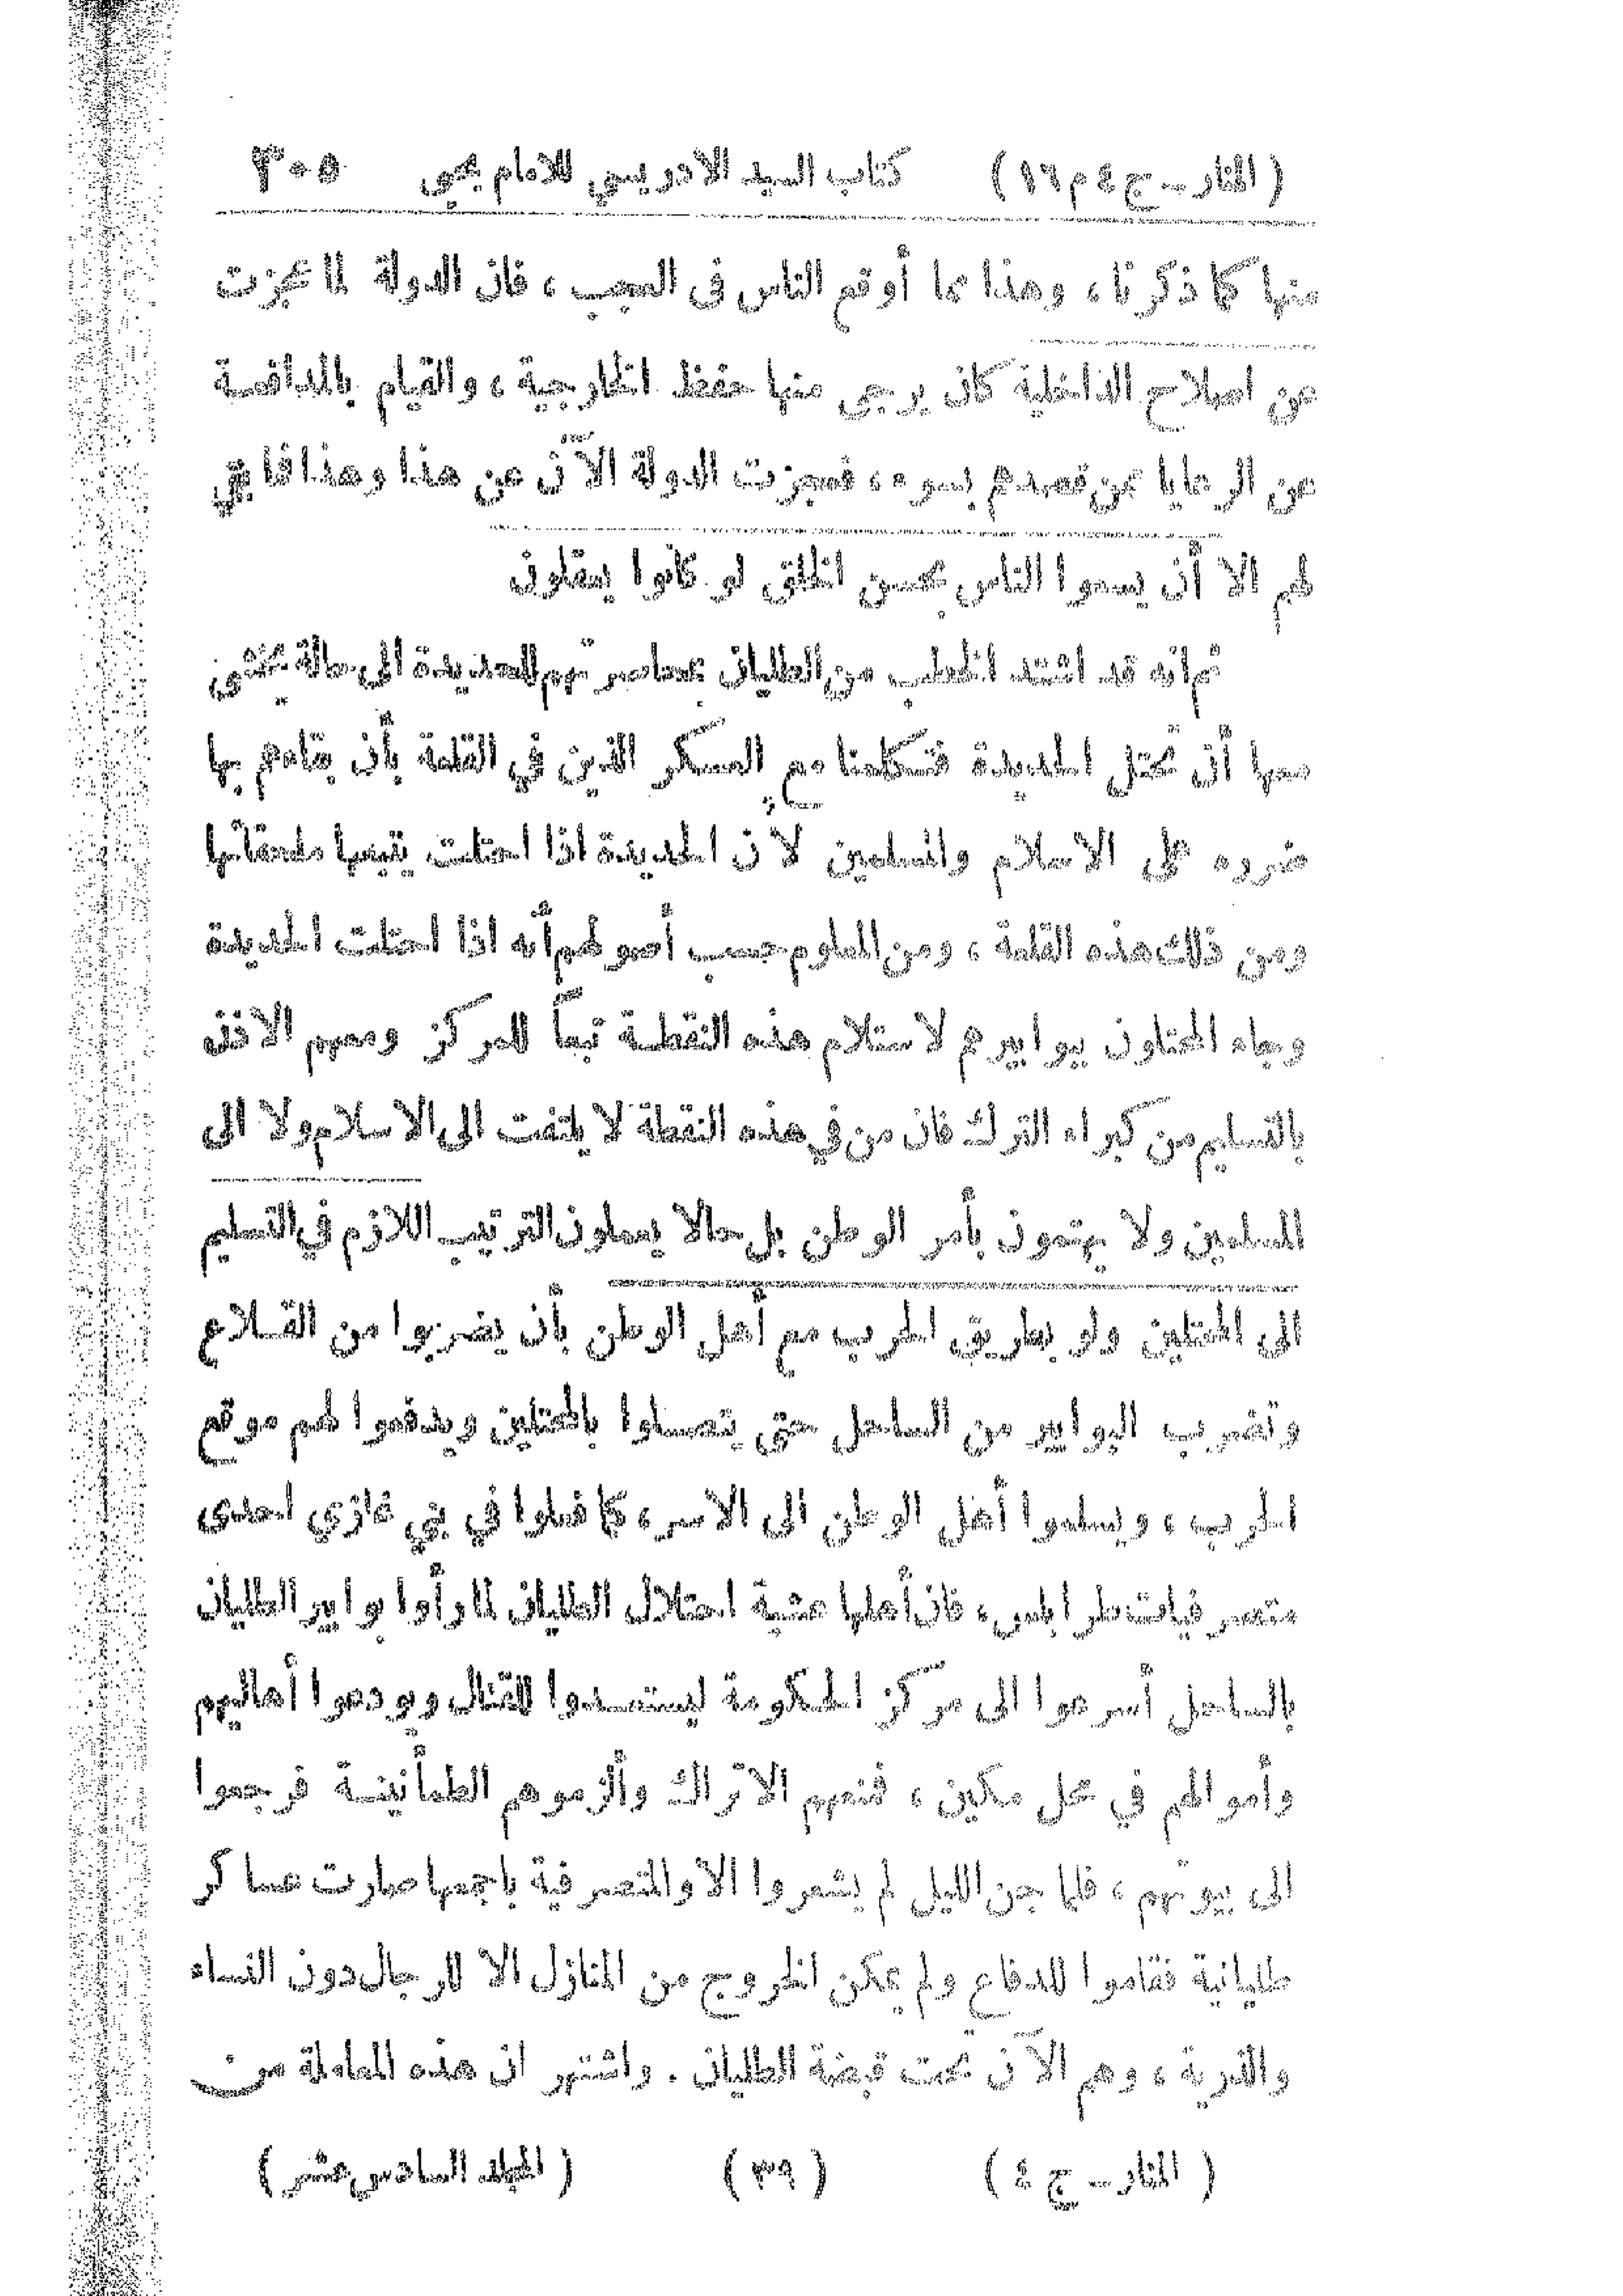 (المنار ــ ج ٤ م ١٦) كتاب السيد الادريسي للامام يحيى ٣٠٥
منها كما ذكرنا، وهذا مما أوقع الناس فى العجب، فان الدولة لما عجزت
عن اصلاح الداخلية كان يرجى منها حفظ الخارجية، والقيام بالمدافعـة
عن الرعايا عمن قصدهم بسوء، فعجزت الدولة الآن عن هذا وهذا فما بقي
لهم الا أن يسعوا الناس بحسن الخلق لو كانوا يعقلون
ثم انه قد اشتد الخطب من الطليان بمحاصرتهم للحديدة الى حالة يخشى
معها أن تحتل الحديدة فتكلمنا مع العسكر الذين في القلعة بأن بقاءهم بها
ضرره على الاسلام والمسلمين لان الحديدة اذا احتلت يتبعها ملحقاتها
ومن ذلك هذه القلعة، ومن المعلوم حسب أصولهم أنه اذا احتلت الحديدة
وجاء المحتلون ببوابيرهم لاستلام هذه النقطـة تبعاً للمركز ومعهم الاذن
بالتسليم من كبراء الترك فان من في هذه النقطة لا يلتفت الى الاسلام ولا الى
المسلمين ولا يهتمون بأمر الوطن بل حالا يعملون الترتيب اللازم في التسليم
الى المحتلين ولو بطريق الحرب مع أهل الوطن بأن يضربوا من القـلاع
وتضرب البوابير من الساحل حتى يتصـلوا بالمحتلين ويدفعوا لهم موقع
الحرب، ويسلموا أهل الوطن الى الاسر، كما فعلوا في بني غازي احدى
متصرفيات طرابلس، فان أهلها عشية احتلال الطليان لما رأوا بوابير الطليان
بالساحل أسرعوا الى مركز الحكومة ليستعـدوا للقتال ويودعوا أهاليهم
وأموالهم في محل مكين، فمنعهم الاتراك وألزموهم الطمأنينـة فرجعوا
الى بيوتهم، فلما جن الليل لم يشعروا الا والمتصرفية باجمعها صارت عساكر
طليانية فقاموا للدفاع ولم يمكن الخروج من المنازل الا للرجال دون النساء
والذرية، وهم الآن تحت قبضة الطليان. واشتهر ان هذه المعاملة من
(المنار ــ ج ٤) (٣٩) (المجلد السادس عشر)